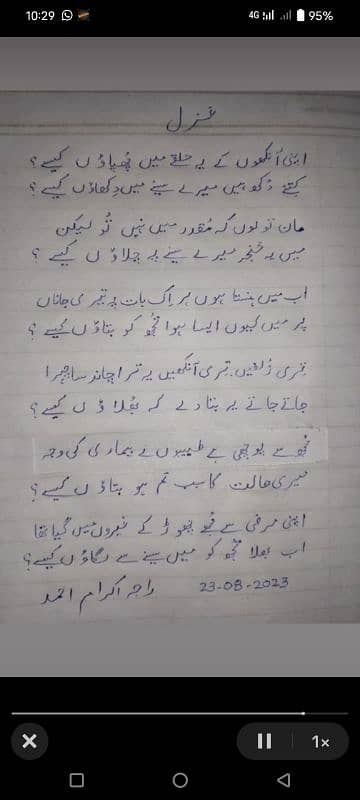 10:29
4G
95%
غزل
اپنی آنکھوں کے یہ حلقے میں چھپاؤں کیسے؟
کتنے دُکھ ہیں میرے سینے میں دِکھاؤں کیسے؟
مان تو لوں کہ مُقدر میں نہیں تُو لیکن
میں یہ خنجر میرے سینے پہ چلاؤں کیسے؟
اب میں ہنستا ہوں ہر اِک بات پہ تیری جاناں
پر میں کیوں ایسا ہوا تُجھ کو بتاؤں کیسے؟
تیری زُلفیں تیری آنکھیں یہ ترا چاند سا چہرا
جاتے جاتے یہ بتا دے کہ بُھلاؤں کیسے؟
مُجھ سے پوچھی ہے طبیبوں نے بیماری کی وجہ
میری حالت کا سبب تم ہو بتاؤں کیسے؟
اپنی مرضی سے مجھے چھوڑ کے غیروں میں گیا تھا
اب بھلا تُجھ کو میں سینے سے لگاؤں کیسے؟
راجہ اکرام احمد 23-08-2023
1×